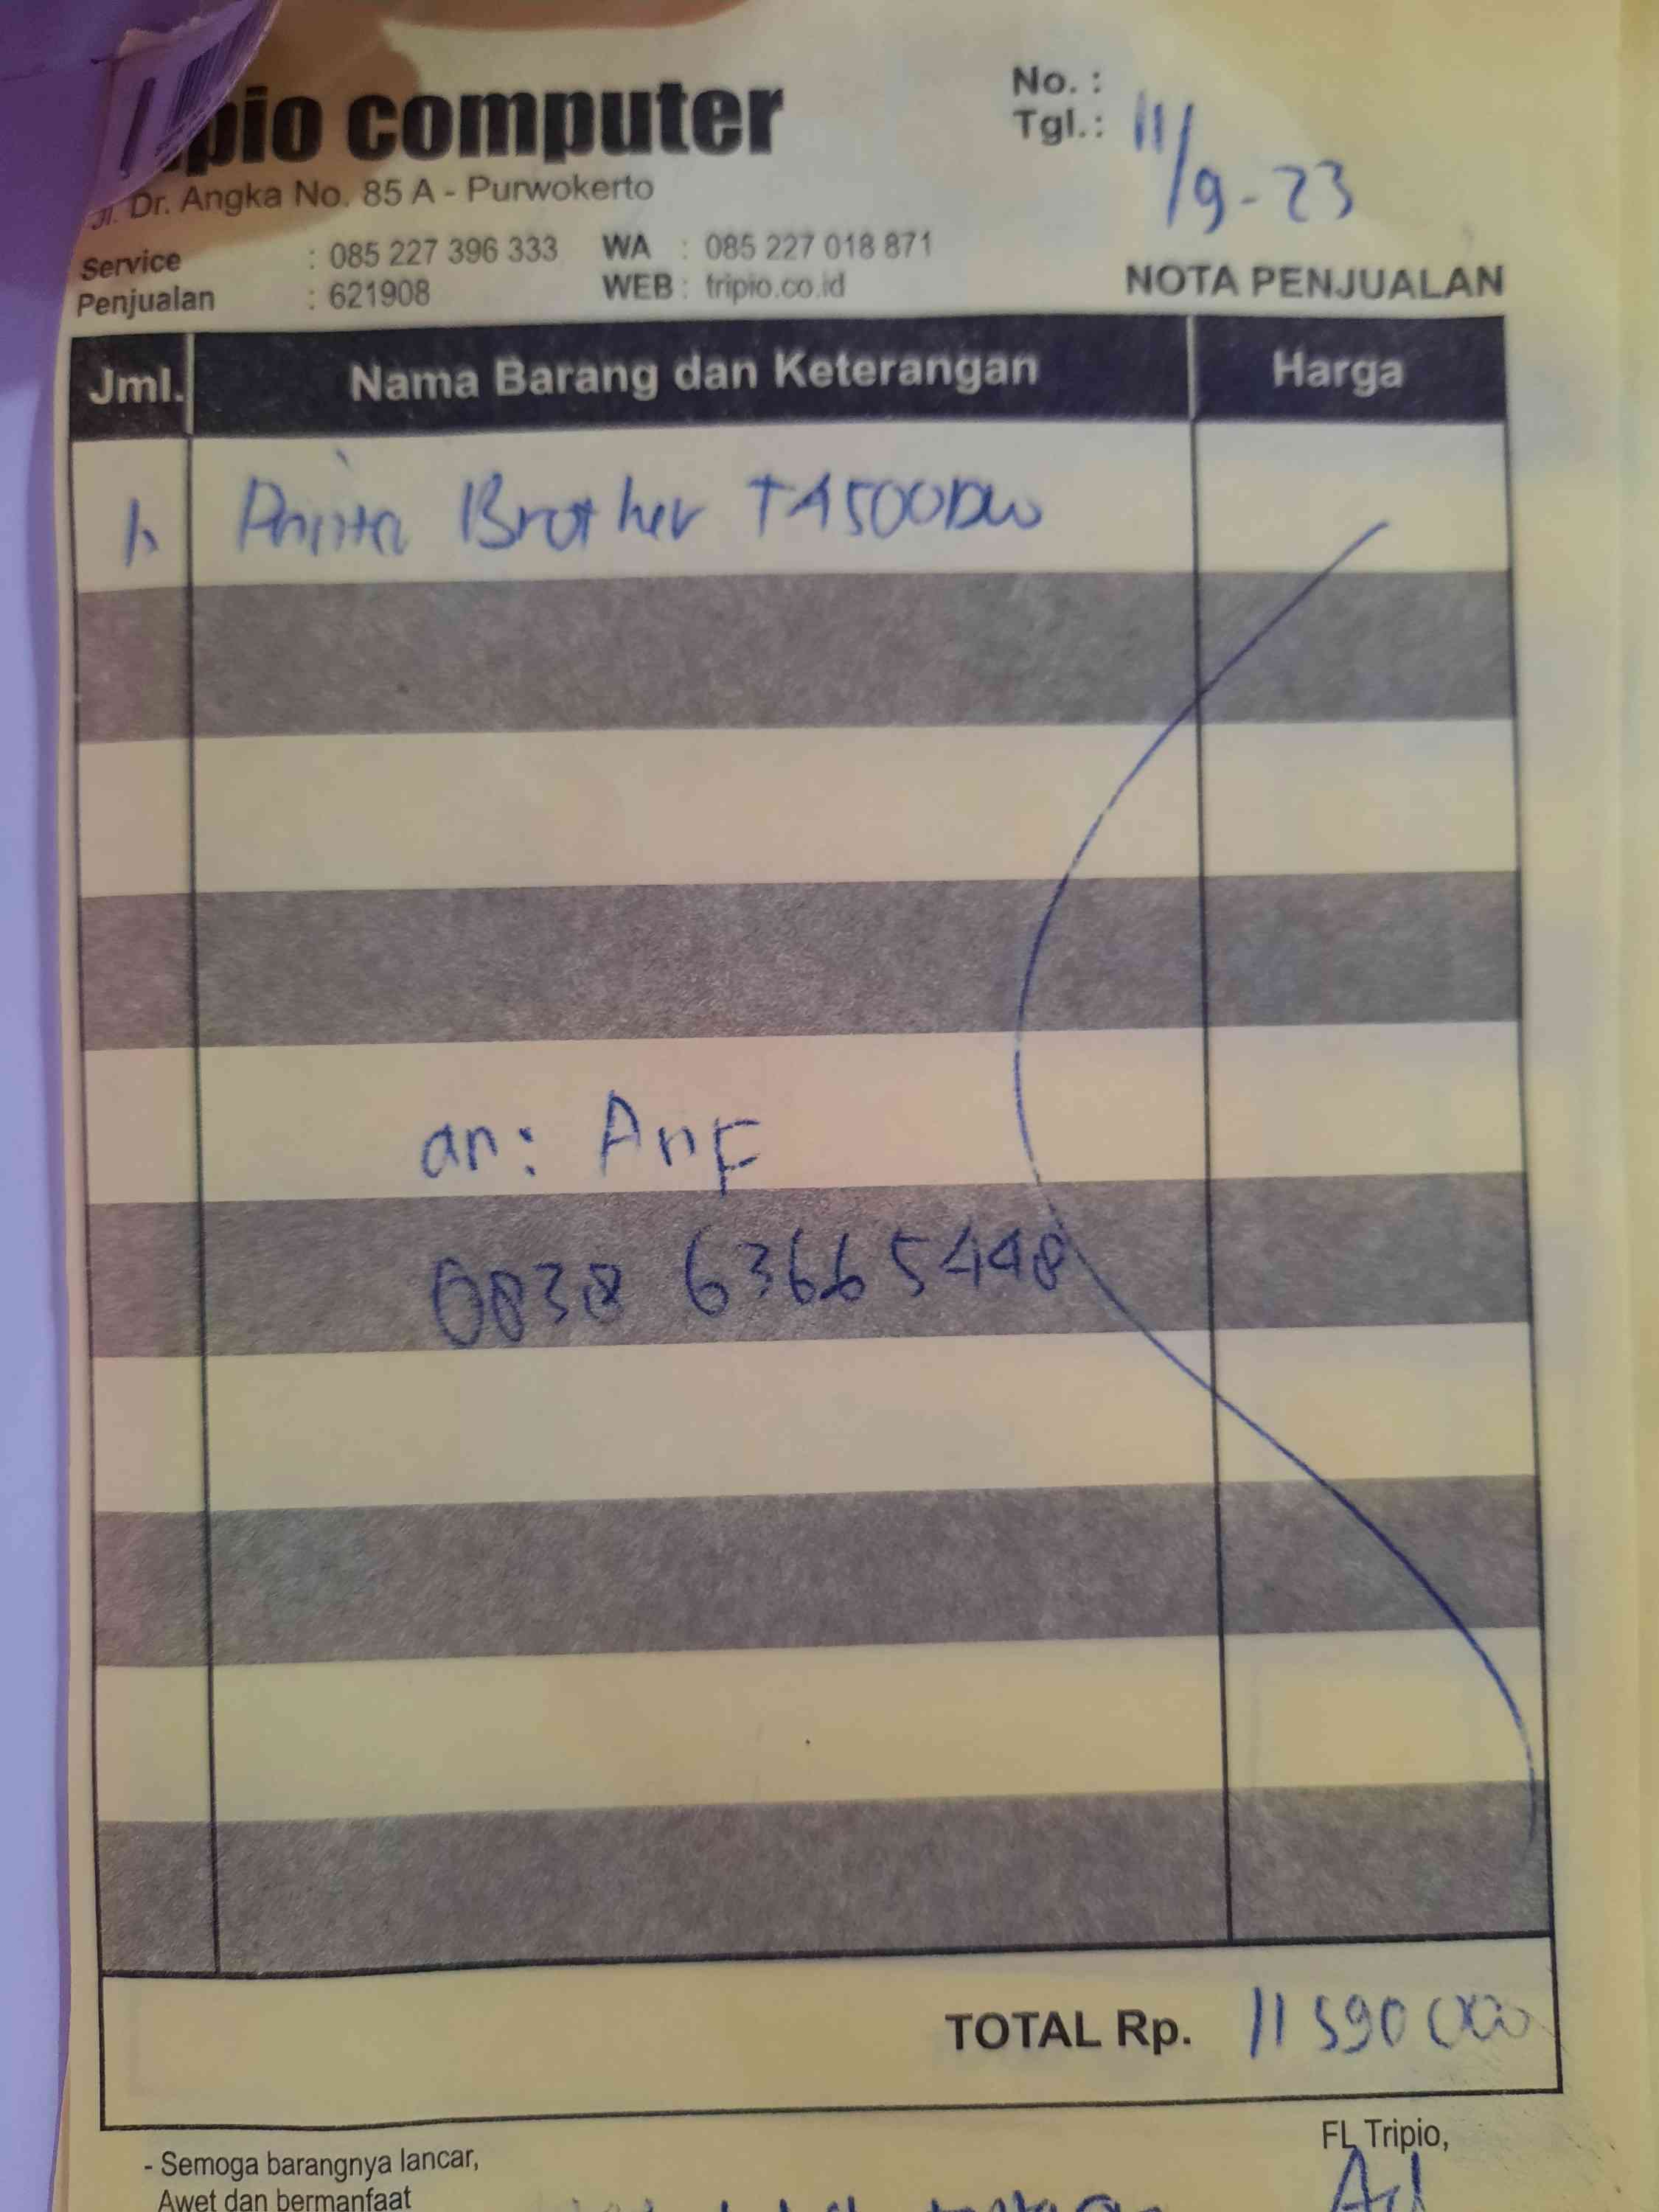 pio computer
No. :
Tgl.: 11/9-23
Jl. Dr. Angka No. 85 A - Purwokerto
Service : 085 227 396 333 WA : 085 227 018 871
Penjualan : 621908 WEB : tripio.co.id
NOTA PENJUALAN
Jml. Nama Barang dan Keterangan Harga
1. Printer Brother T4500DW
an: Arif
0838 63665448
TOTAL Rp. 11 590 000
FL Tripio,
- Semoga barangnya lancar,
Awet dan bermanfaat